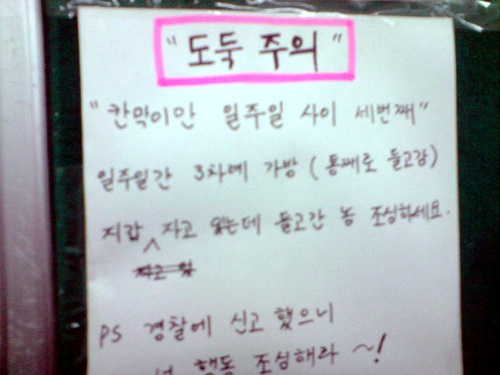 "도둑 주의"
"칸막이만 일주일 사이 세번째"
일주일간 3차례 가방 (통째로 들고감)
지갑 자고 있는데 들고간 놈 조심하세요.
자고 있
PS 경찰에 신고 했으니
행동 조심해라 ~!